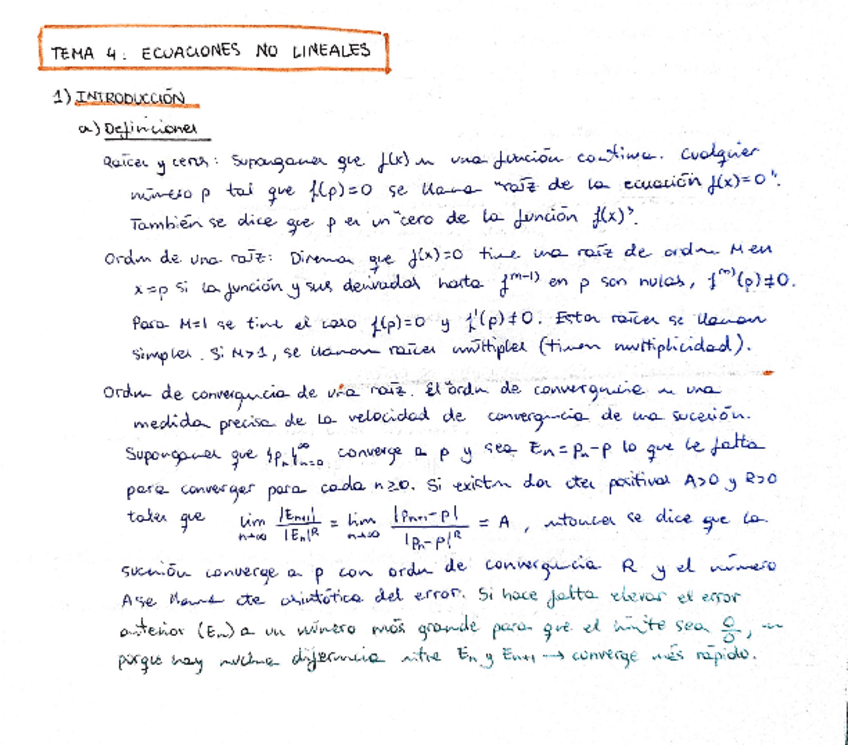 TEMA 4: ECUACIONES NO LINEALES
1) INTRODUCCIÓN
a) Definiciones
Raíces y ceros: Supongamos que f(x) es una función continua. Cualquier
número p tal que f(p)=0 se llama "raíz de la ecuación f(x)=0".
También se dice que p es un "cero de la función f(x)".
Orden de una raíz: Diremos que f(x)=0 tiene una raíz de orden M en
x=p si la función y sus derivadas hasta f^(m-1) en p son nulas, f^(m)(p)≠0.
Para M=1 se tiene el caso f(p)=0 y f'(p)≠0. Estas raíces se llaman
simples. Si M>1, se llaman raíces múltiples (tienen multiplicidad).
Orden de convergencia de una raíz. El orden de convergencia es una
medida precisa de la velocidad de convergencia de una sucesión.
Supongamos que {p_n}_{n=0}^∞ converge a p y sea E_n = p_n - p lo que le falta
para converger para cada n≥0. Si existen dos ctes positivas A>0 y R>0
tales que lim_{n→∞} |E_{n+1}| / |E_n|^R = lim_{n→∞} |p_{n+1} - p| / |p_n - p|^R = A, entonces se dice que la
sucesión converge a p con orden de convergencia R y el número
A se llama cte asintótica del error. Si hace falta elevar el error
anterior (E_n) a un número más grande para que el límite sea 0/0, es
porque hay mucha diferencia entre E_n y E_{n+1} → converge más rápido.